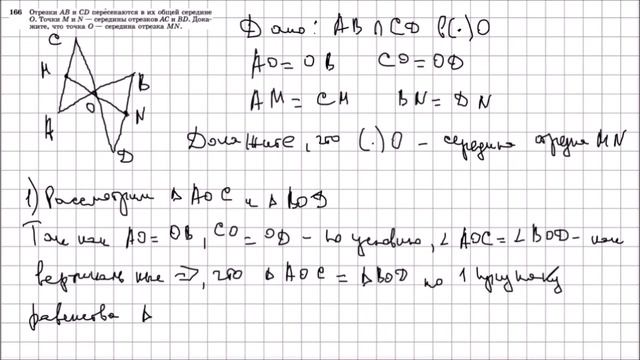 166 Отрезки AB и CD пересекаются в их общей середине
O. Точки M и N — середины отрезков AC и BD. Дока-
жите, что точка O — середина отрезка MN.
Дано: AB ∩ CD в (·) O
AO = OB CO = OD
AM = CM BN = DN
Докажите, что (·) O – середина отрезка MN
C
M
B
O
A
N
D
1) Рассмотрим Δ AOC и Δ BOD
Так как AO = OB, CO = OD – по условию, ∠ AOC = ∠ BOD – как
вертикальные ⇒, что Δ AOC = Δ BOD по 1 признаку
равенства Δ